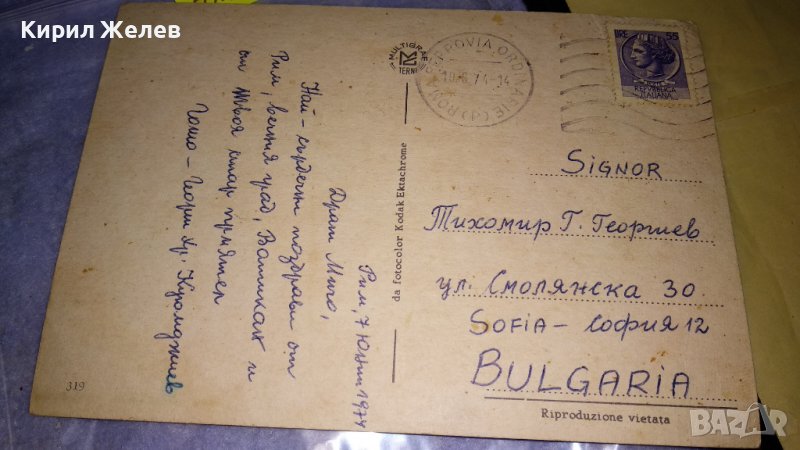 Кирил Желев
Рим, 7 Юни 1974
Драги Мичо,
Най-сърдечни поздрави от
Рим, вечния град, Ватикан и
от твоя стар приятел
Гошо - Георги Хр. Куюмджиев
319
da fotocolor Kodak Ektachrome
MULTIGRAF
TERNI
ROMA FERROVIA ORDINARIE
19.6.74-14
LIRE 55
REPVBBLICA
ITALIANA
SIGNOR
Тихомир Г. Георгиев
ул. Смолянска 30
SOFIA - СОФИЯ 12
BULGARIA
Riproduzione vietata
BAZAR